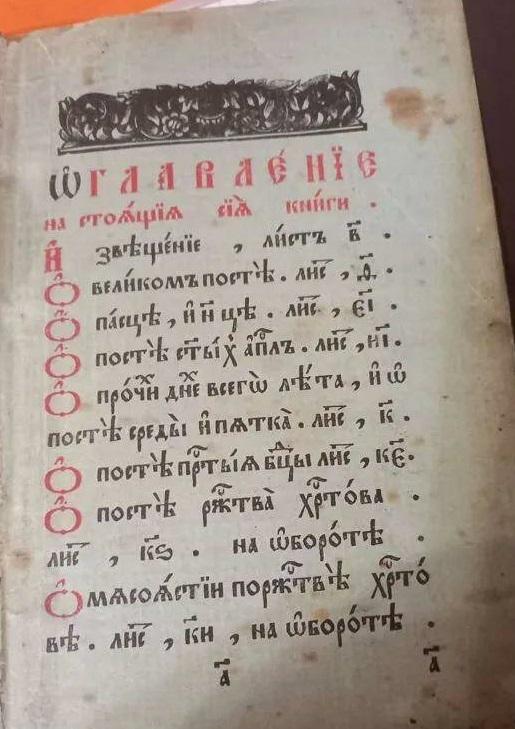 Ѡ҆ГЛАВЛЕ́НЇЕ
на стоѧ́щїѧ сїѧ̀ кни́ги .
И҆звѣще́нїе , ли́стъ в҃ .
Ѽ вели́комъ постѣ̀ . ли́с̑ , д҃ .
Ѽ па́сцѣ , и҆ н҃цѣ . ли́с̑ , є҃і .
Ѽ постѣ̀ ст҃ы́хъ а҆пⷭ҇лъ . ли́с̑ , и҃і .
Ѽ про́чїи дн҃е всегѡ̀ лѣ́та , и҆ ѡ҆
постѣ̀ среды̀ и҆ пѧтка̀ . ли́с̑ , к҃ .
Ѽ постѣ̀ прⷭ҇ты́ѧ бц҃ы ли́с̑ , к҃є .
Ѽ постѣ̀ ржⷭ҇тва̀ хрⷭ҇то́ва .
ли́с̑ , к҃ѕ . на ѡ҆боро́тѣ .
Ѽ мѧсоѧ́стїи по ржⷭ҇твѣ̀ хрⷭ҇то́
вѣ . ли́с̑ , к҃и , на ѡ҆боро́тѣ .
а҃ а҃